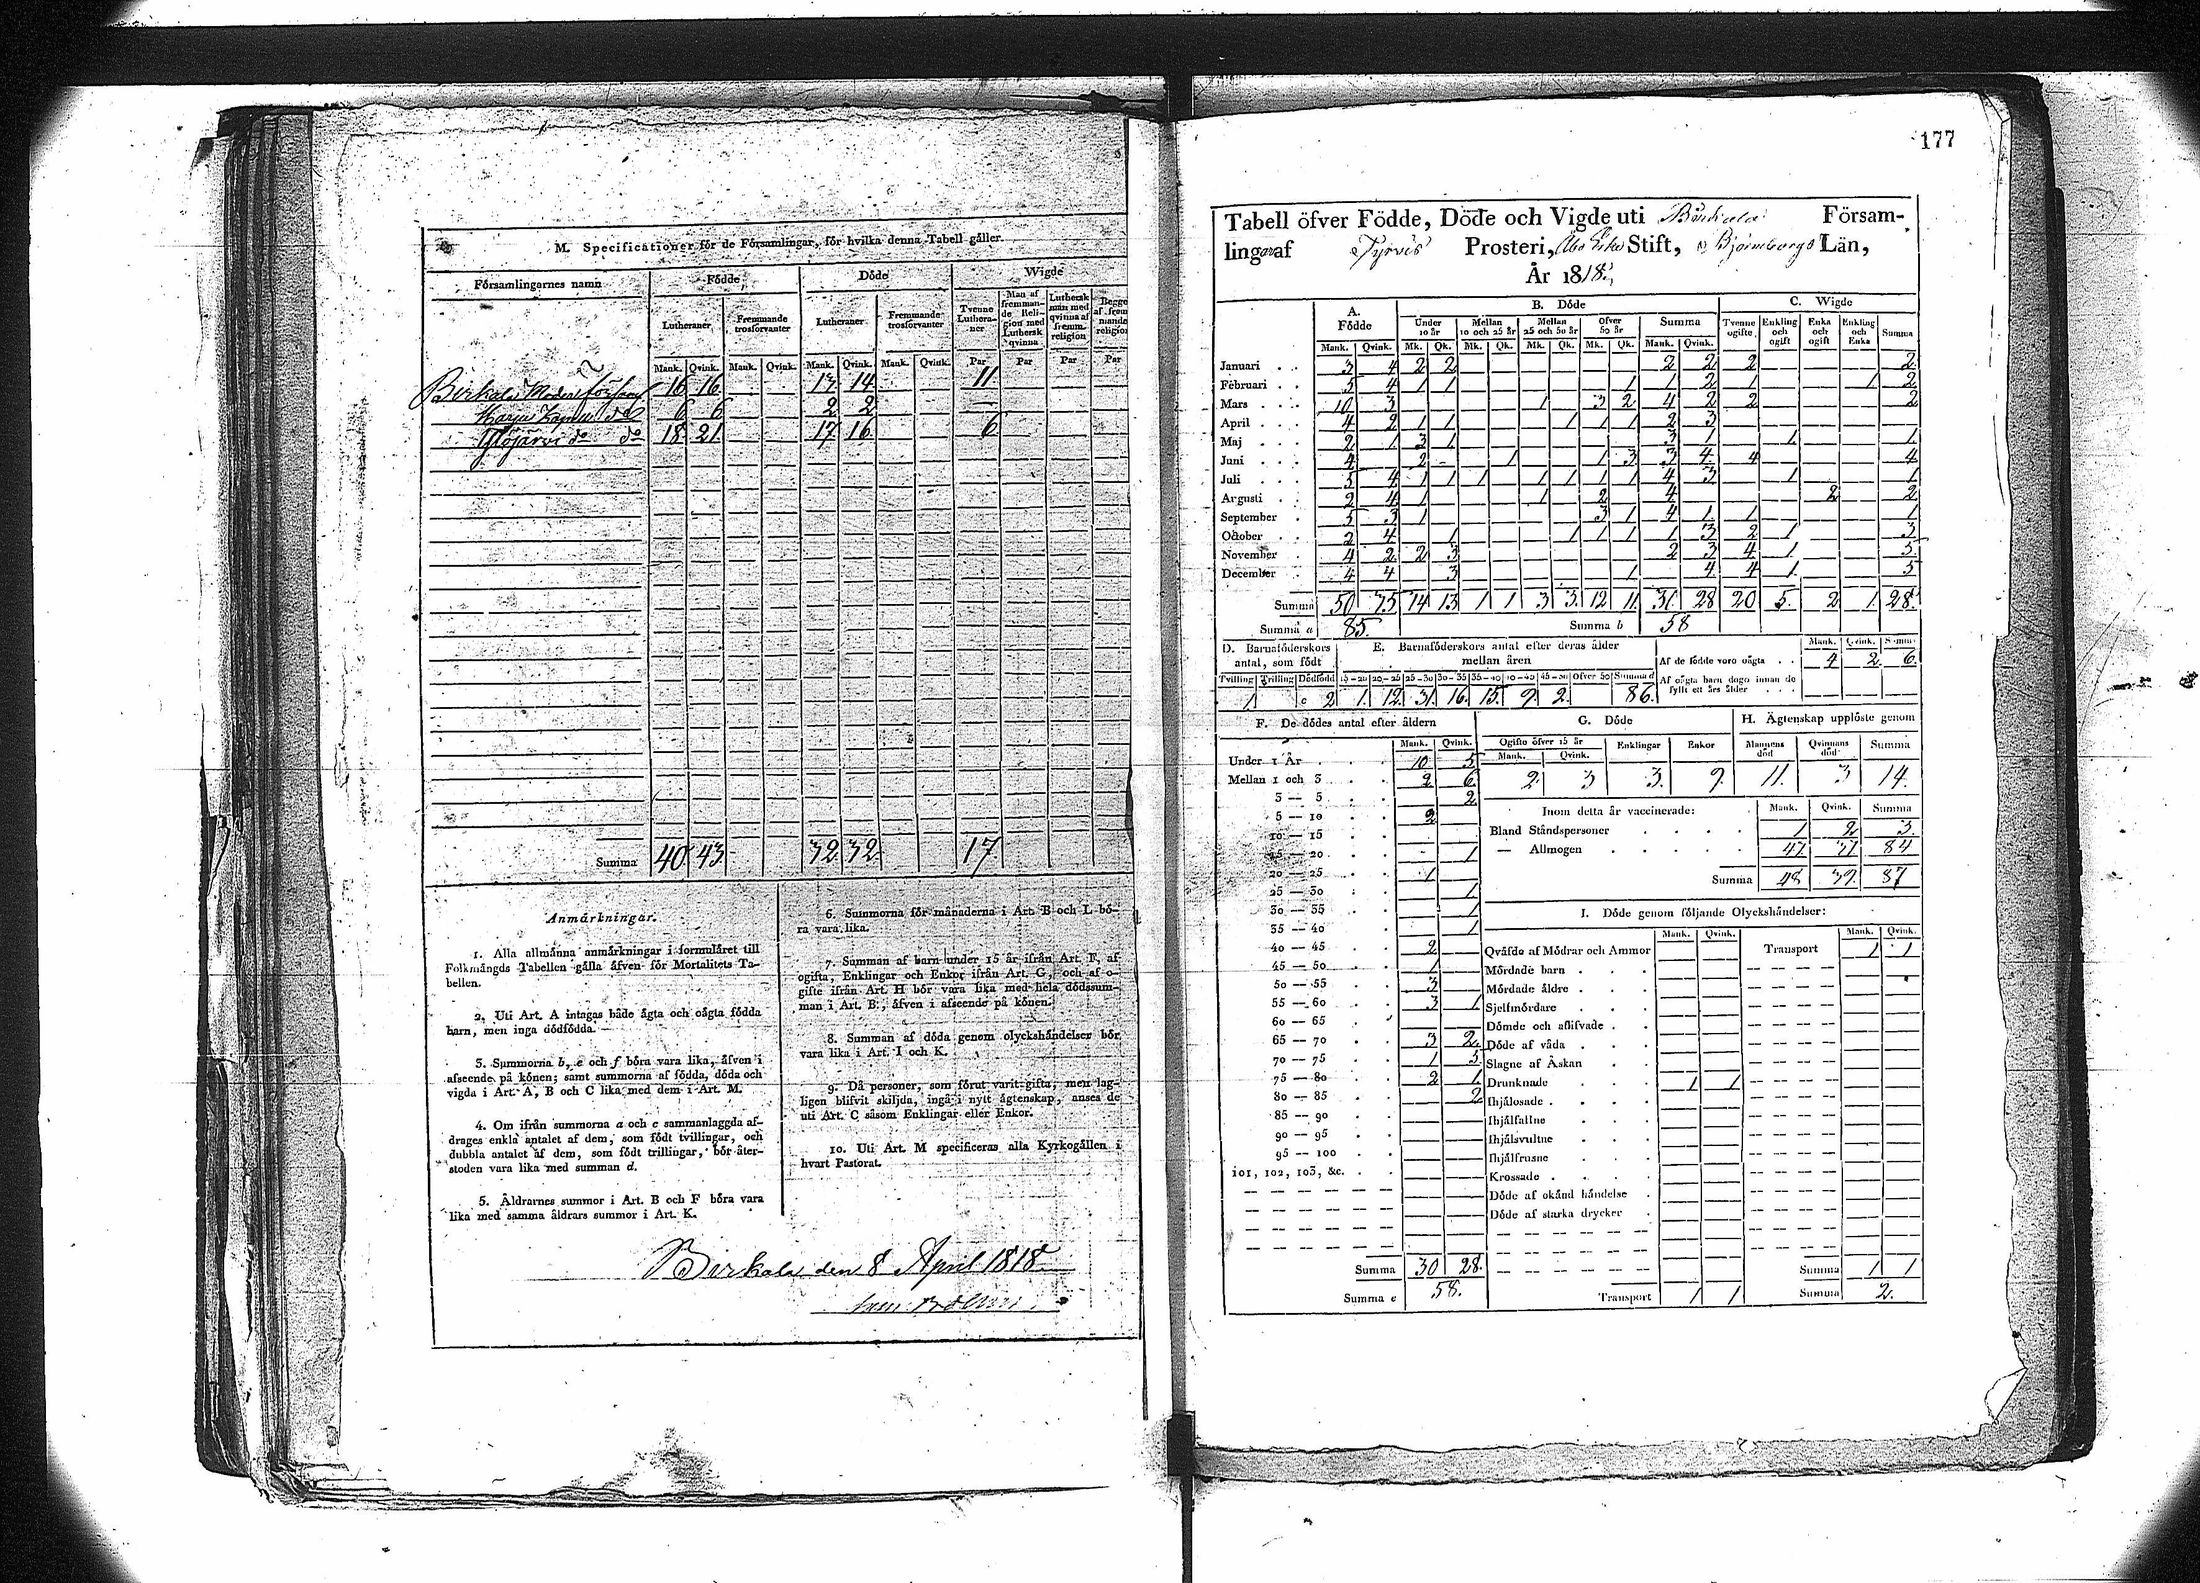 M. Specificationer för de Församlingar, för hvilka denna Tabell gäller.
Församlingarnes namn Födde Döde Wigde
Lutheraner Fremmande trosförvanter Lutheraner Fremmande trosförvanter Tvenne Lutheraner Man af fremmande Religion med Luthersk qvinna Luthersk man med qvinna af fremm. religion Begge af fremmande religion
Mank. Qvink. Mank. Qvink. Mank. Qvink. Mank. Qvink. Par Par Par Par
Birkala Moder förs 16 16 13 14 11
Harju Kapell do 6 6 2 2 —
Ylöjärvi do do 18 21 17 16 6
Summa 40 43 32 32 17
Anmärkningar.
1. Alla allmänna anmärkningar i formuläret till
Folkmängds Tabellen gälla äfven för Mortalitets Ta-
bellen.
2. Uti Art. A intagas både ägta och oägta födda
barn, men inga dödfödda.
3. Summorna b, e och f böra vara lika, äfven i
afseende på könen; samt summorna af födda, döda och
vigda i Art. A, B och C lika med dem i Art. M.
4. Om ifrån summorna a och c sammanlaggda af-
drages enkla antalet af dem, som födt tvillingar, och
dubbla antalet af dem, som födt trillingar, bör åter-
stoden vara lika med summan d.
5. Åldrarnes summor i Art. B och F böra vara
lika med samma åldrars summor i Art. K.
6. Summorna för månaderna i Art. B och L bö-
ra vara lika.
7. Summan af barn under 15 år ifrån Art. F, af
ogifta, Enklingar och Enkor ifrån Art. G, och af o-
gifte ifrån Art. H bör vara lika med hela dödssum-
man i Art. B; äfven i afseende på könen.
8. Summan af döda genom olyckshändelser bör
vara lika i Art. I och K.
9. Då personer, som förut varit gifta, men lag-
ligen blifvit skiljda, ingå i nytt ägtenskap, anses de
uti Art. C såsom Enklingar eller Enkor.
10. Uti Art. M specificeras alla Kyrkogällen i
hvart Pastorat.
Birkala den 8 April 1818
177
Tabell öfver Födde, Döde och Vigde uti Birkala Försam-
lingar af Tyrvis Prosteri, Åbo Erke Stift, Björneborgs Län,
År 1818.
A. Födde B. Döde C. Wigde
Under 10 år Mellan 10 och 25 år Mellan 25 och 50 år Öfver 50 år Summa Tvenne ogifte Enkling och ogift Enka och ogift Enkling och Enka Summa
Mank. Qvink. Mk. Qk. Mk. Qk. Mk. Qk. Mk. Qk. Mank. Qvink.
Januari 3 4 2 2 2 2 2 2
Februari 5 4 1 1 1 1 2 1 1 2
Mars 10 3 1 3 2 4 2 2 2
April 4 2 1 1 1 1 1 2 3
Maj 2 1 3 1 3 1 1 1
Juni 4 2 1 1 3 3 4 4 4
Juli 5 4 1 1 1 1 1 1 1 4 3 1 1
Augusti 2 4 1 1 2 4 2 2
September 5 3 1 3 1 4 1 1 1
October 2 4 1 1 1 1 1 3 2 1 3
November 4 2 2 3 2 3 4 1 5
December 4 4 3 1 4 4 1 5
Summa 50 35 14 13 1 1 3 3 12 11 30 28 20 5 2 1 28
Summa a 85. Summa b 58
D. Barnaföderskors antal, som födt E. Barnaföderskors antal efter deras ålder mellan åren
Mank. Qvink. Summa
Af de födde voro oägta 4 2 6
Tvilling Trilling Dödfödd 15—20 20—25 25—30 30—35 35—40 40—45 45—50 Öfver 50 Summa d
1 c 2 1 12 31 16 15 9 2 86
Af oägta barn dogo innan de
fyllt ett års ålder
F. De dödes antal efter åldern G. Döde H. Ägtenskap upplöste genom
Mank. Qvink. Ogifte öfver 15 år Enklingar Enkor Mannens död Qvinnans död Summa
Mank. Qvink.
2 3 3 9 11 3 14
Under 1 År 10 5
Mellan 1 och 3 2 6
3 — 5 2
5 — 10 2
10 — 15
15 — 20 1
20 — 25 1
25 — 30 1
30 — 35 1
35 — 40 1
40 — 45 2
45 — 50 1
50 — 55 3
55 — 60 3 1
60 — 65
65 — 70 3 2
70 — 75 1 5
75 — 80 2 1
80 — 85 2
85 — 90
90 — 95
95 — 100
101, 102, 103, &c.
Summa 30 28
Summa e 58.
Inom detta år vaccinerade: Mank. Qvink. Summa
Bland Ståndspersoner 1 2 3
— Allmogen 47 37 84
Summa 48 39 87
I. Döde genom följande Olyckshändelser:
Mank. Qvink. Mank. Qvink.
Qväfde af Mödrar och Ammor Transport 1 1
Mördade barn
Mördade äldre
Sjelfmördare
Dömde och aflifvade
Döde af våda
Slagne af Åskan
Drunknade 1 1
Ihjälosade
Ihjälfallne
Ihjälsvultne
Ihjälfrusne
Krossade
Döde af okänd händelse
Döde af starka drycker
Summa 1 1
Transport 1 1 Summa 2.